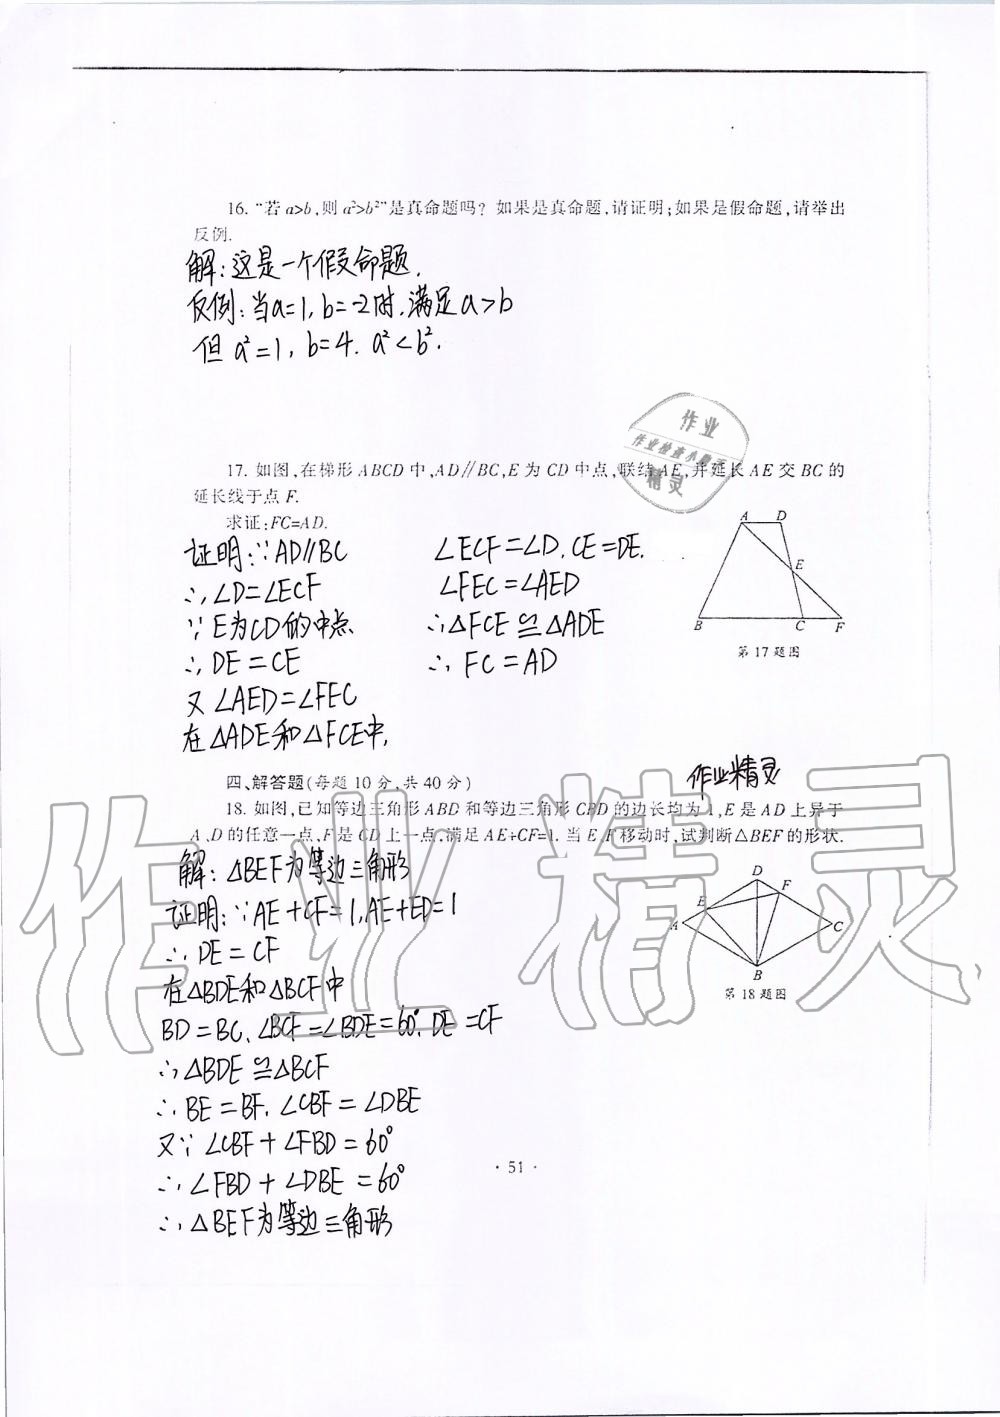 16. “若 a>b,则 a²>b²”是真命题吗? 如果是真命题,请证明;如果是假命题,请举出
反例.
解:这是一个假命题.
反例:当a=1, b=-2时.满足a>b
但 a²=1, b=4. a²<b².
作业
作业检查小帮手
精灵
17. 如图,在梯形 ABCD 中,AD∥BC,E 为 CD 中点,联结 AE,并延长 AE 交 BC 的
延长线于点 F.
求证:FC=AD.
证明:∵AD∥BC
∴∠D=∠ECF
∵E为CD的中点
∴DE=CE
又∠AED=∠FEC
在△ADE和△FCE中,
∠ECF=∠D.CE=DE.
∠FEC=∠AED
∴△FCE≌△ADE
∴FC=AD
A D
E
B C F
第 17 题图
作业精灵
四、解答题(每题 10 分,共 40 分)
18. 如图,已知等边三角形 ABD 和等边三角形 CBD 的边长均为 1,E 是 AD 上异于
A、D 的任意一点,F 是 CD 上一点,满足 AE+CF=1. 当 E、F 移动时,试判断△BEF 的形状.
解:△BEF为等边三角形
证明:∵AE+CF=1,AE+ED=1
∴DE=CF
在△BDE和△BCF中
BD=BC、∠BCF=∠BDE=60°.DE=CF
∴△BDE≌△BCF
∴BE=BF.∠CBF=∠DBE
又∵∠CBF+∠FBD=60°
∴∠FBD+∠DBE=60°
∴△BEF为等边三角形
D
F
E
A C
B
第 18 题图
作业精灵
· 51 ·